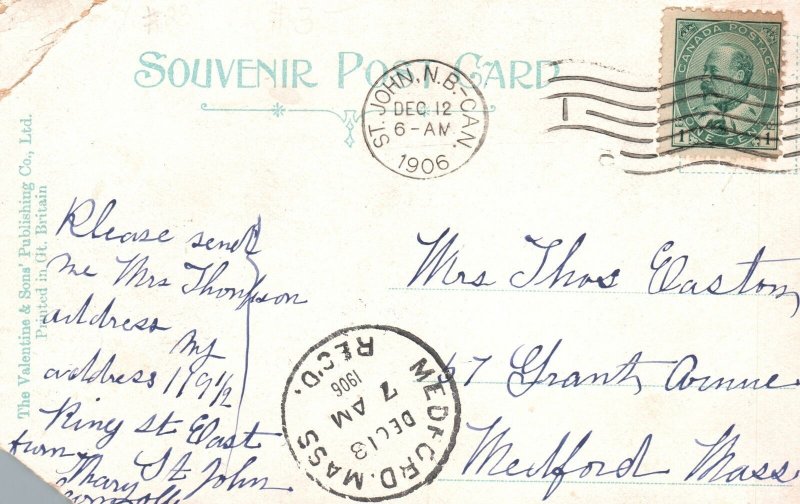 SOUVENIR POST CARD
ST. JOHN, N.B.-CAN.
DEC 12
6-AM
1906
CANADA POSTAGE
1 ONE CENT 1
The Valentine & Sons' Publishing Co., Ltd.
Printed in Gt. Britain
Please send
me Mrs Thompson
address
my
address 119½
King St East
St John
Mary
Mrs Thos Easton
67 Grant Avenue
Medford Mass
MEDFORD. MASS
DEC 13
7 AM
1906
REC'D.